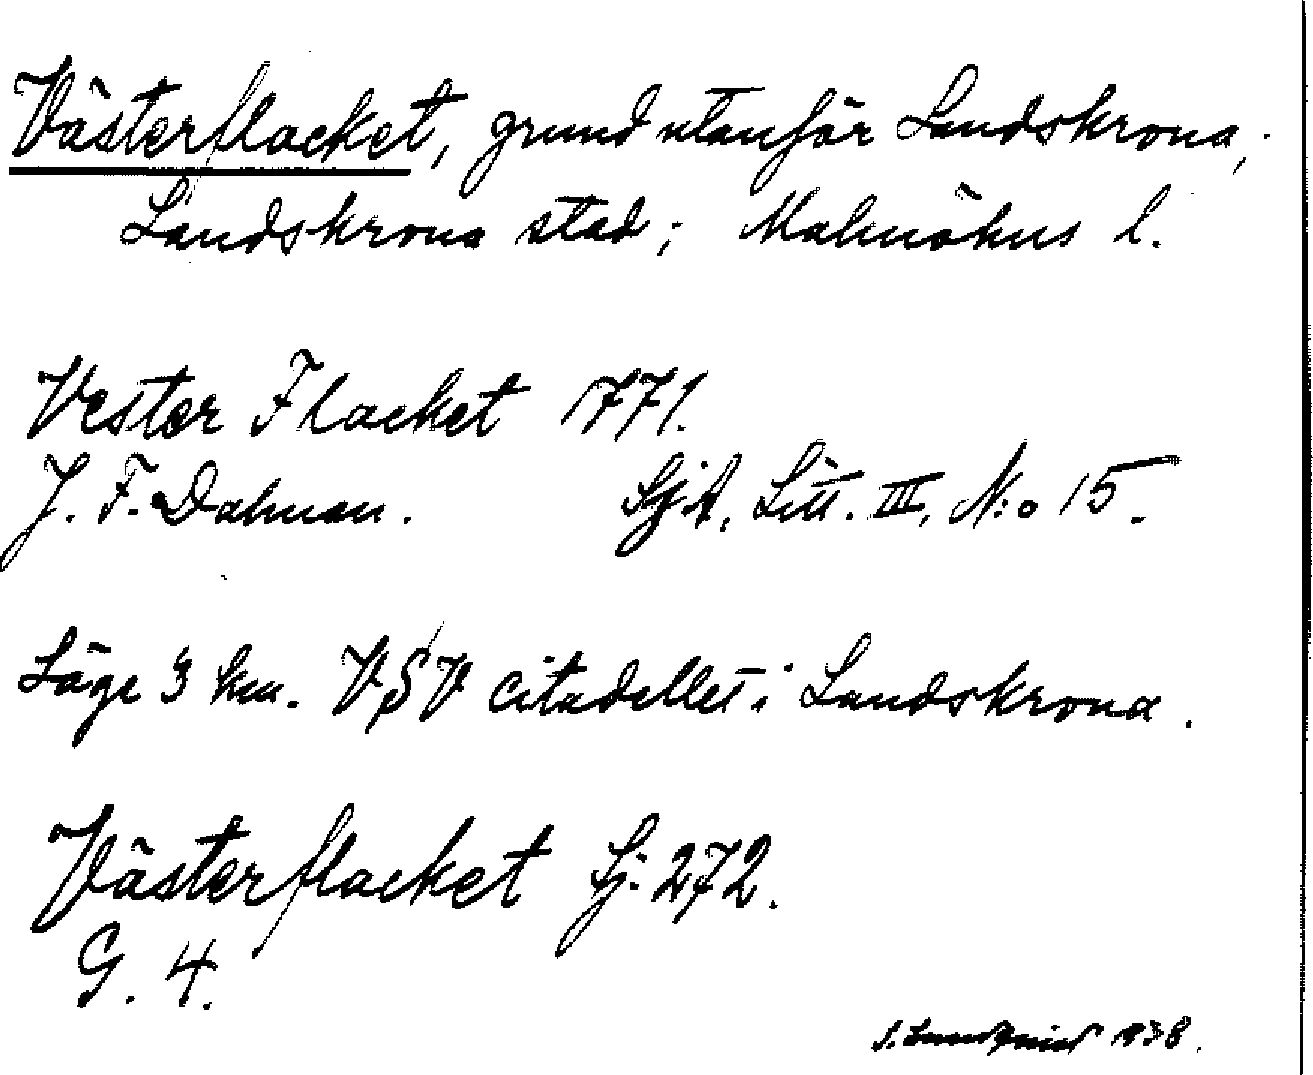 Västerflacket, grund utanför Landskrona,
Landskrona stad; Malmöhus l.
Vester Flacket 1771.
J. F. Dalman. SjA, Litt. III, N:o 15.
Läge 3 km. VSV citadellet i Landskrona.
Västerflacket Sj. 272.
G. 4.
S. Lundquist 1938.